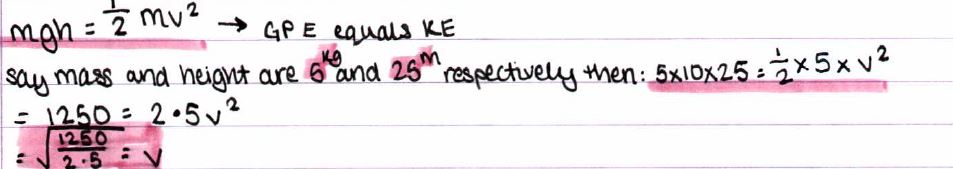 mgh = 1/2 mv² → GPE equals KE
say mass and height are 5kg and 25m respectively then: 5x10x25 = 1/2 x 5 x v²
= 1250 = 2.5v²
= √(1250/2.5) = v